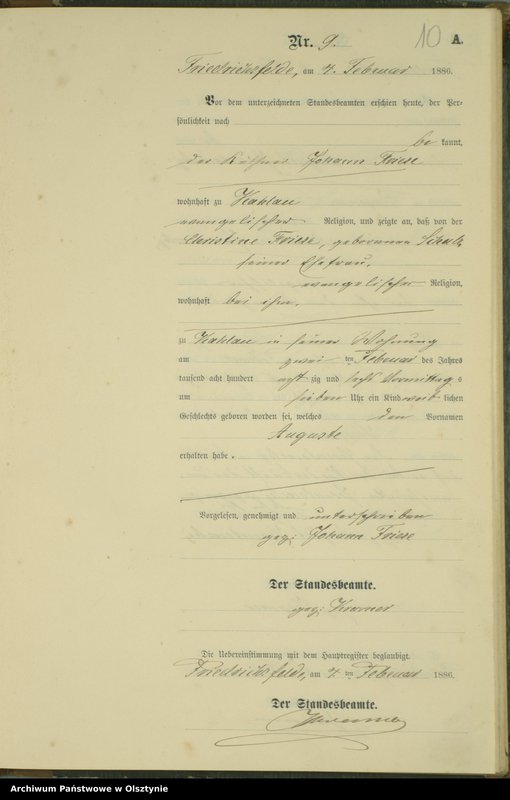 Nr. 9. 10 A.
Friedrichsfelde, am 4. Februar 1886.
Vor dem unterzeichneten Standesbeamten erschien heute, der Per-
sönlichkeit nach
be kannt,
der Käthner Johann Friese
wohnhaft zu Kahlau
evangelischer Religion, und zeigte an, daß von der
Christine Friese, geborenen Schulz
seiner Ehefrau,
evangelischer Religion,
wohnhaft bei ihm,
zu Kahlau in seiner Wohnung
am zwei ten Februar des Jahres
tausend acht hundert acht zig und sechs Vormittags
um sieben Uhr ein Kind weib lichen
Geschlechts geboren worden sei, welches den Vornamen
Auguste
erhalten habe.
Vorgelesen, genehmigt und unterschrieben
gez: Johann Friese
Der Standesbeamte.
gez: Kramer
Die Uebereinstimmung mit dem Hauptregister beglaubigt.
Friedrichsfelde, am 4. ten Februar 1886.
Der Standesbeamte.
Kramer
Archiwum Państwowe w Olsztynie